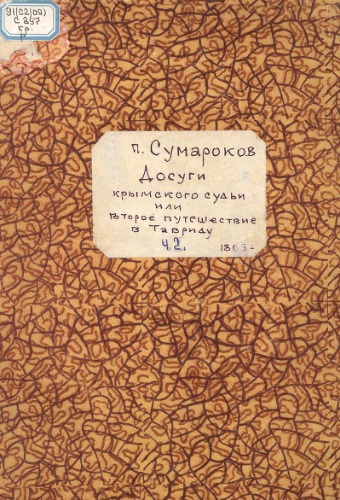 91(С2)(09)
С 897
п. Сумароков
Досуги
крымского судьи
или
второе путешествие
в Тавриду
ч.2. 1805-